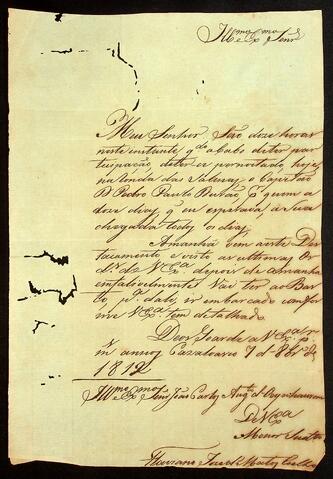 Illmo. e Exmo. Senr.
Meu Senhor. São doze horas
neste instante q̃ acabo de ter par-
ticipação de ter se pernoitado hoje
na ronda das Salinas o Capitão
D. Pedro Paulo Bastão, p. quem a
doze dias q̃ eu esperava a sua
chegada todos os dias.
Amanhã vem este Des-
tacamento e visto as ultimas Or
dns. de V. Exa. depois de amanhã
infalivelmente vão ter ao Bar-
co, p. dalí ir embarcado confor
me V. Exa. tem detalhado.
Deos Guarde a V. Exa.
ms. annos Cazalvasco 7 de 8bro. de
1812
Illmo. e Exmo. Senr. João Carlos Augto. d'Oeynhausen
De V. Exa.
Menor Sudito
Floriano José de Mattos Coelho